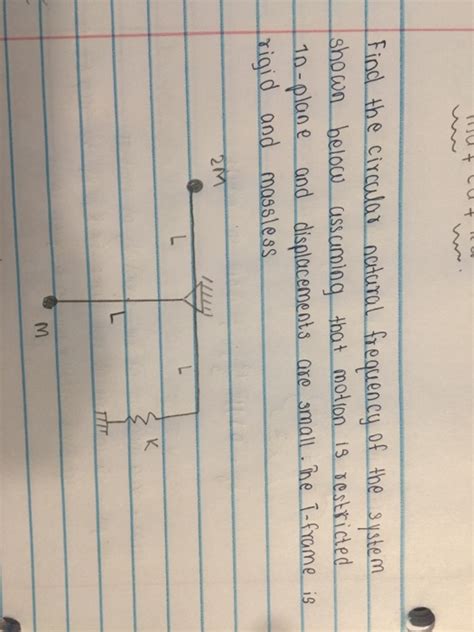 Find the circular natural frequency of the system
shown below assuming that motion is restricted
In-plane and displacements are small. The T-frame is
rigid and massless
2M
L
L
L
K
M